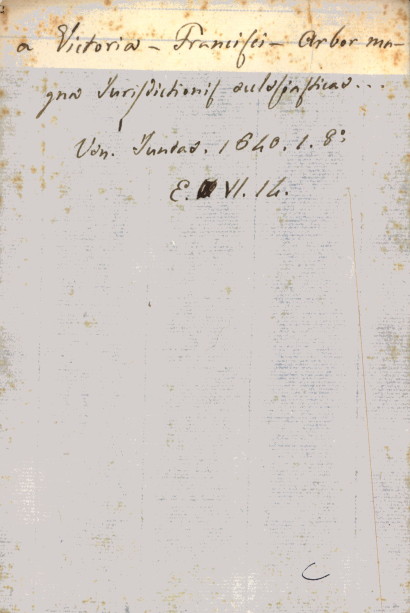 a Victoria - Francisci - Arbor ma-
gna Jurisdictionis ecclesiasticae...
Ven. Juntas. 1640. 1. 8º
E. VI. 14.
C